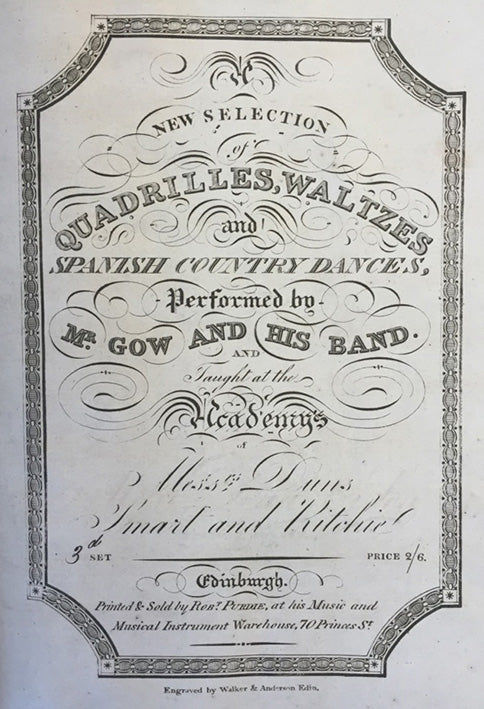 A
NEW SELECTION
of
QUADRILLES, WALTZES
and
SPANISH COUNTRY DANCES,
Performed by
Mr. GOW AND HIS BAND.
AND
Taught at the
Academy's
of
Messrs. Duns
Smart and Ritchie
3d SET PRICE 2/6.
Edinburgh.
Printed & Sold by Robt. PURDIE, at his Music and
Musical Instrument Warehouse, 70 Princes St.
Engraved by Walker & Anderson Edin.